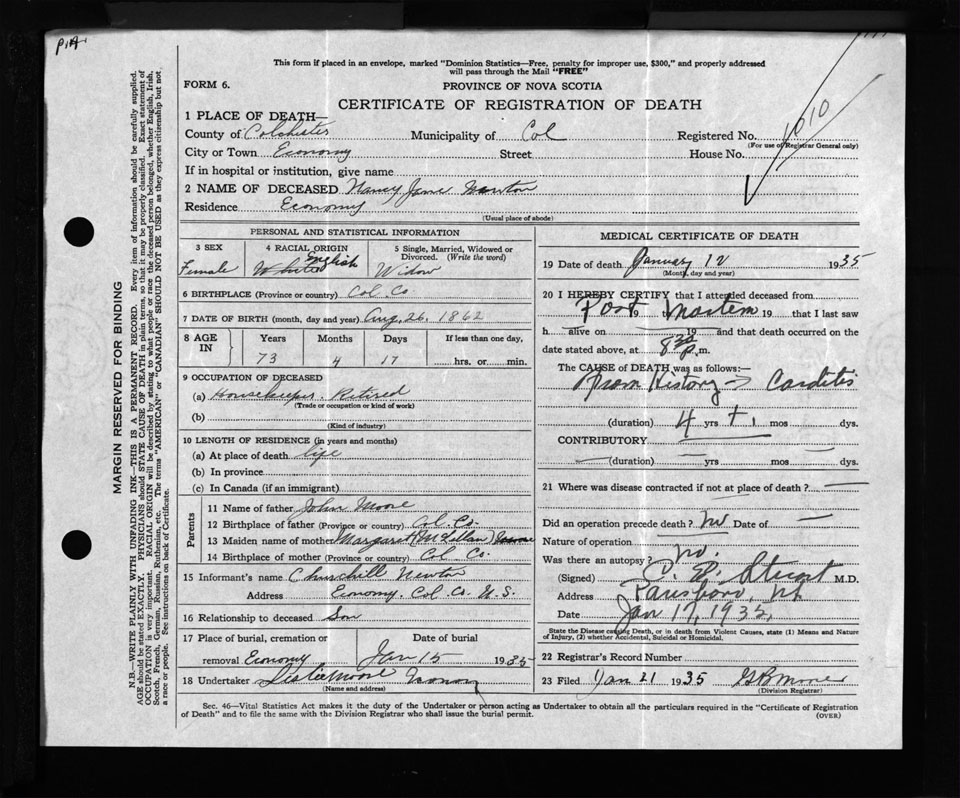 P.A.
This form if placed in an envelope, marked "Dominion Statistics—Free, penalty for improper use, $300," and properly addressed
will pass through the Mail "FREE"
FORM 6.
PROVINCE OF NOVA SCOTIA
CERTIFICATE OF REGISTRATION OF DEATH
1 PLACE OF DEATH—
County of Colchester Municipality of Col Registered No. 1010
(For use of Registrar General only)
City or Town Economy Street House No.
If in hospital or institution, give name
2 NAME OF DECEASED Nancy Jane Newton
Residence Economy
(Usual place of abode)
PERSONAL AND STATISTICAL INFORMATION
3 SEX 4 RACIAL ORIGIN 5 Single, Married, Widowed or Divorced. (Write the word)
Female White English Widow
6 BIRTHPLACE (Province or country) Col. Co
7 DATE OF BIRTH (month, day and year) Aug. 26. 1862
8 AGE IN Years Months Days If less than one day,
73 4 17 hrs. or min.
9 OCCUPATION OF DECEASED
(a) Housekeeper. Retired
(Trade or occupation or kind of work)
(b)
(Kind of industry)
10 LENGTH OF RESIDENCE (in years and months)
(a) At place of death life
(b) In province
(c) In Canada (if an immigrant)
Parents
11 Name of father John Moore
12 Birthplace of father (Province or country) Col. Co.
13 Maiden name of mother Margaret (McLellan)
14 Birthplace of mother (Province or country) Col Co.
15 Informant's name Churchill Newton
Address Economy. Col. Co. N.S.
16 Relationship to deceased Son
17 Place of burial, cremation or removal Economy Date of burial Jan 15 1935
18 Undertaker Moore Economy
(Name and address)
MEDICAL CERTIFICATE OF DEATH
19 Date of death January 12 1935
(Month, day and year)
20 I HEREBY CERTIFY that I attended deceased from
Post 19 Mortem 19 that I last saw
h alive on 19 and that death occurred on
date stated above, at 8 30 p.m.
The CAUSE of DEATH was as follows:—
From History → Carditis
(duration) 4 yrs + mos dys.
CONTRIBUTORY
(duration) yrs mos dys.
21 Where was disease contracted if not at place of death? —
Did an operation precede death? no Date of —
Nature of operation
Was there an autopsy? no.
(Signed) Stuart M.D.
Address Parrsboro, NS
Date Jan 17, 1935
State the Disease causing Death, or in death from Violent Causes, state (1) Means and Nature
of Injury, (2) whether Accidental, Suicidal or Homicidal.
22 Registrar's Record Number
23 Filed Jan 21 1935
(Division Registrar)
Sec. 46—Vital Statistics Act makes it the duty of the Undertaker or person acting as Undertaker to obtain all the particulars required in the "Certificate of Registration
of Death" and to file the same with the Division Registrar who shall issue the burial permit.
(OVER)
MARGIN RESERVED FOR BINDING
N.B.—WRITE PLAINLY WITH UNFADING INK—THIS IS A PERMANENT RECORD. Every item of information should be carefully supplied.
AGE should be stated EXACTLY. PHYSICIANS should STATE CAUSE OF DEATH in plain terms, so that it may be properly classified. Exact statement of
OCCUPATION is very important. RACIAL ORIGIN will be described by stating to what people or race the deceased person belonged, whether English, Irish,
Scotch, French, German, Russian, Ruthenian, etc. The terms "AMERICAN" or "CANADIAN" SHOULD NOT BE USED as they express citizenship but not
a race or people. See instructions on back of Certificate.